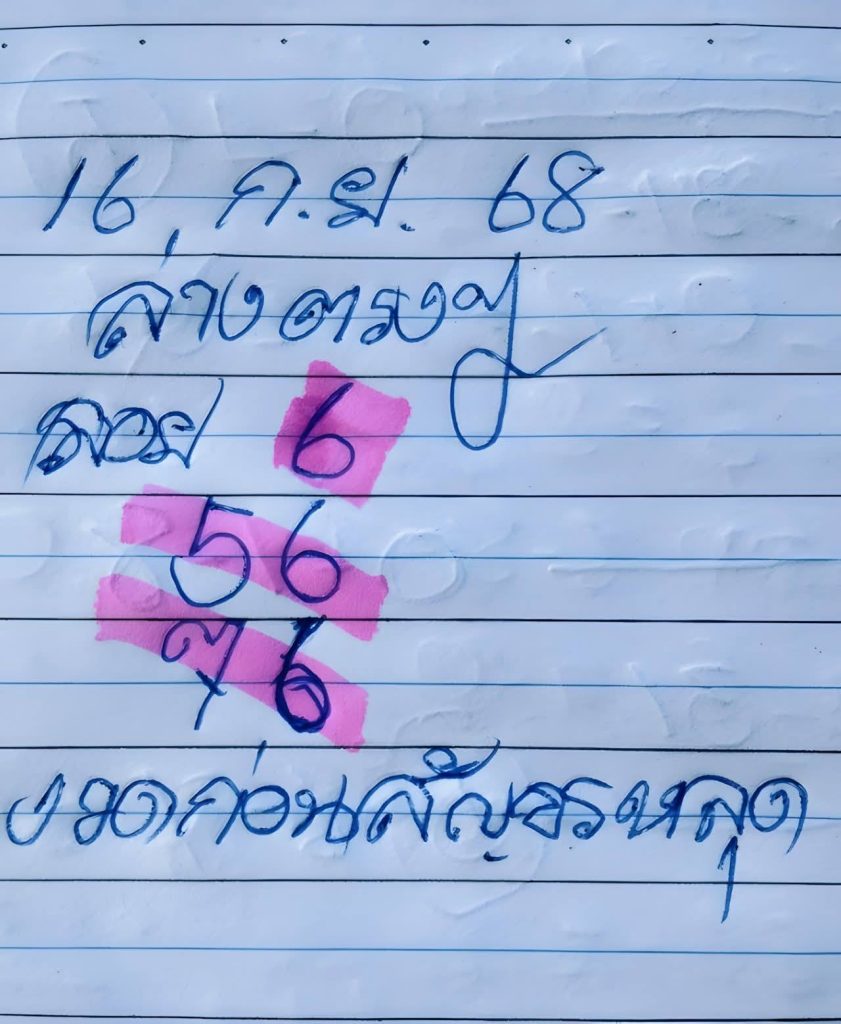 16 ก.ย. 68
ล่างตรงๆ
ลอย 6
56
76
งวดก่อนสัญจรหลุด